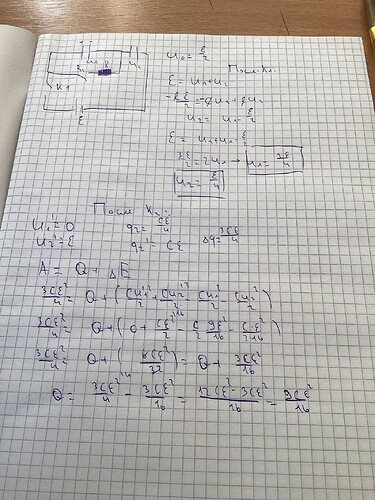 U₀ = ℰ/2
После K₁
ℰ = U₁ + U₂
-Cℰ/2 = -qU₁ + qU₂
U₂ = U₁ - ℰ/2
K₁
R
K1
ℰ
ℰ = U₁ + U₁ - ℰ/2
3ℰ/2 = 2U₁ → U₁ = 3ℰ/4
U₂ = ℰ/4
После K₂:
U₁' = 0
q₂ = Cℰ/4
U₂' = ℰ
q₂' = Cℰ
Δq = 3Cℰ/4
A = Q + ΔE
3Cℰ²/4 = Q + (CU₁'²/2 + CU₂'²/2 - CU₁²/2 - CU₂²/2)
3Cℰ²/4 = Q + (0 + Cℰ²/2 - C/2 9ℰ²/16 - Cℰ²/2·16)
3Cℰ²/4 = Q + (6Cℰ²/32) = Q + 3Cℰ²/16
Q = 3Cℰ²/4 - 3Cℰ²/16 = 12Cℰ² - 3Cℰ²/16 = 9Cℰ²/16